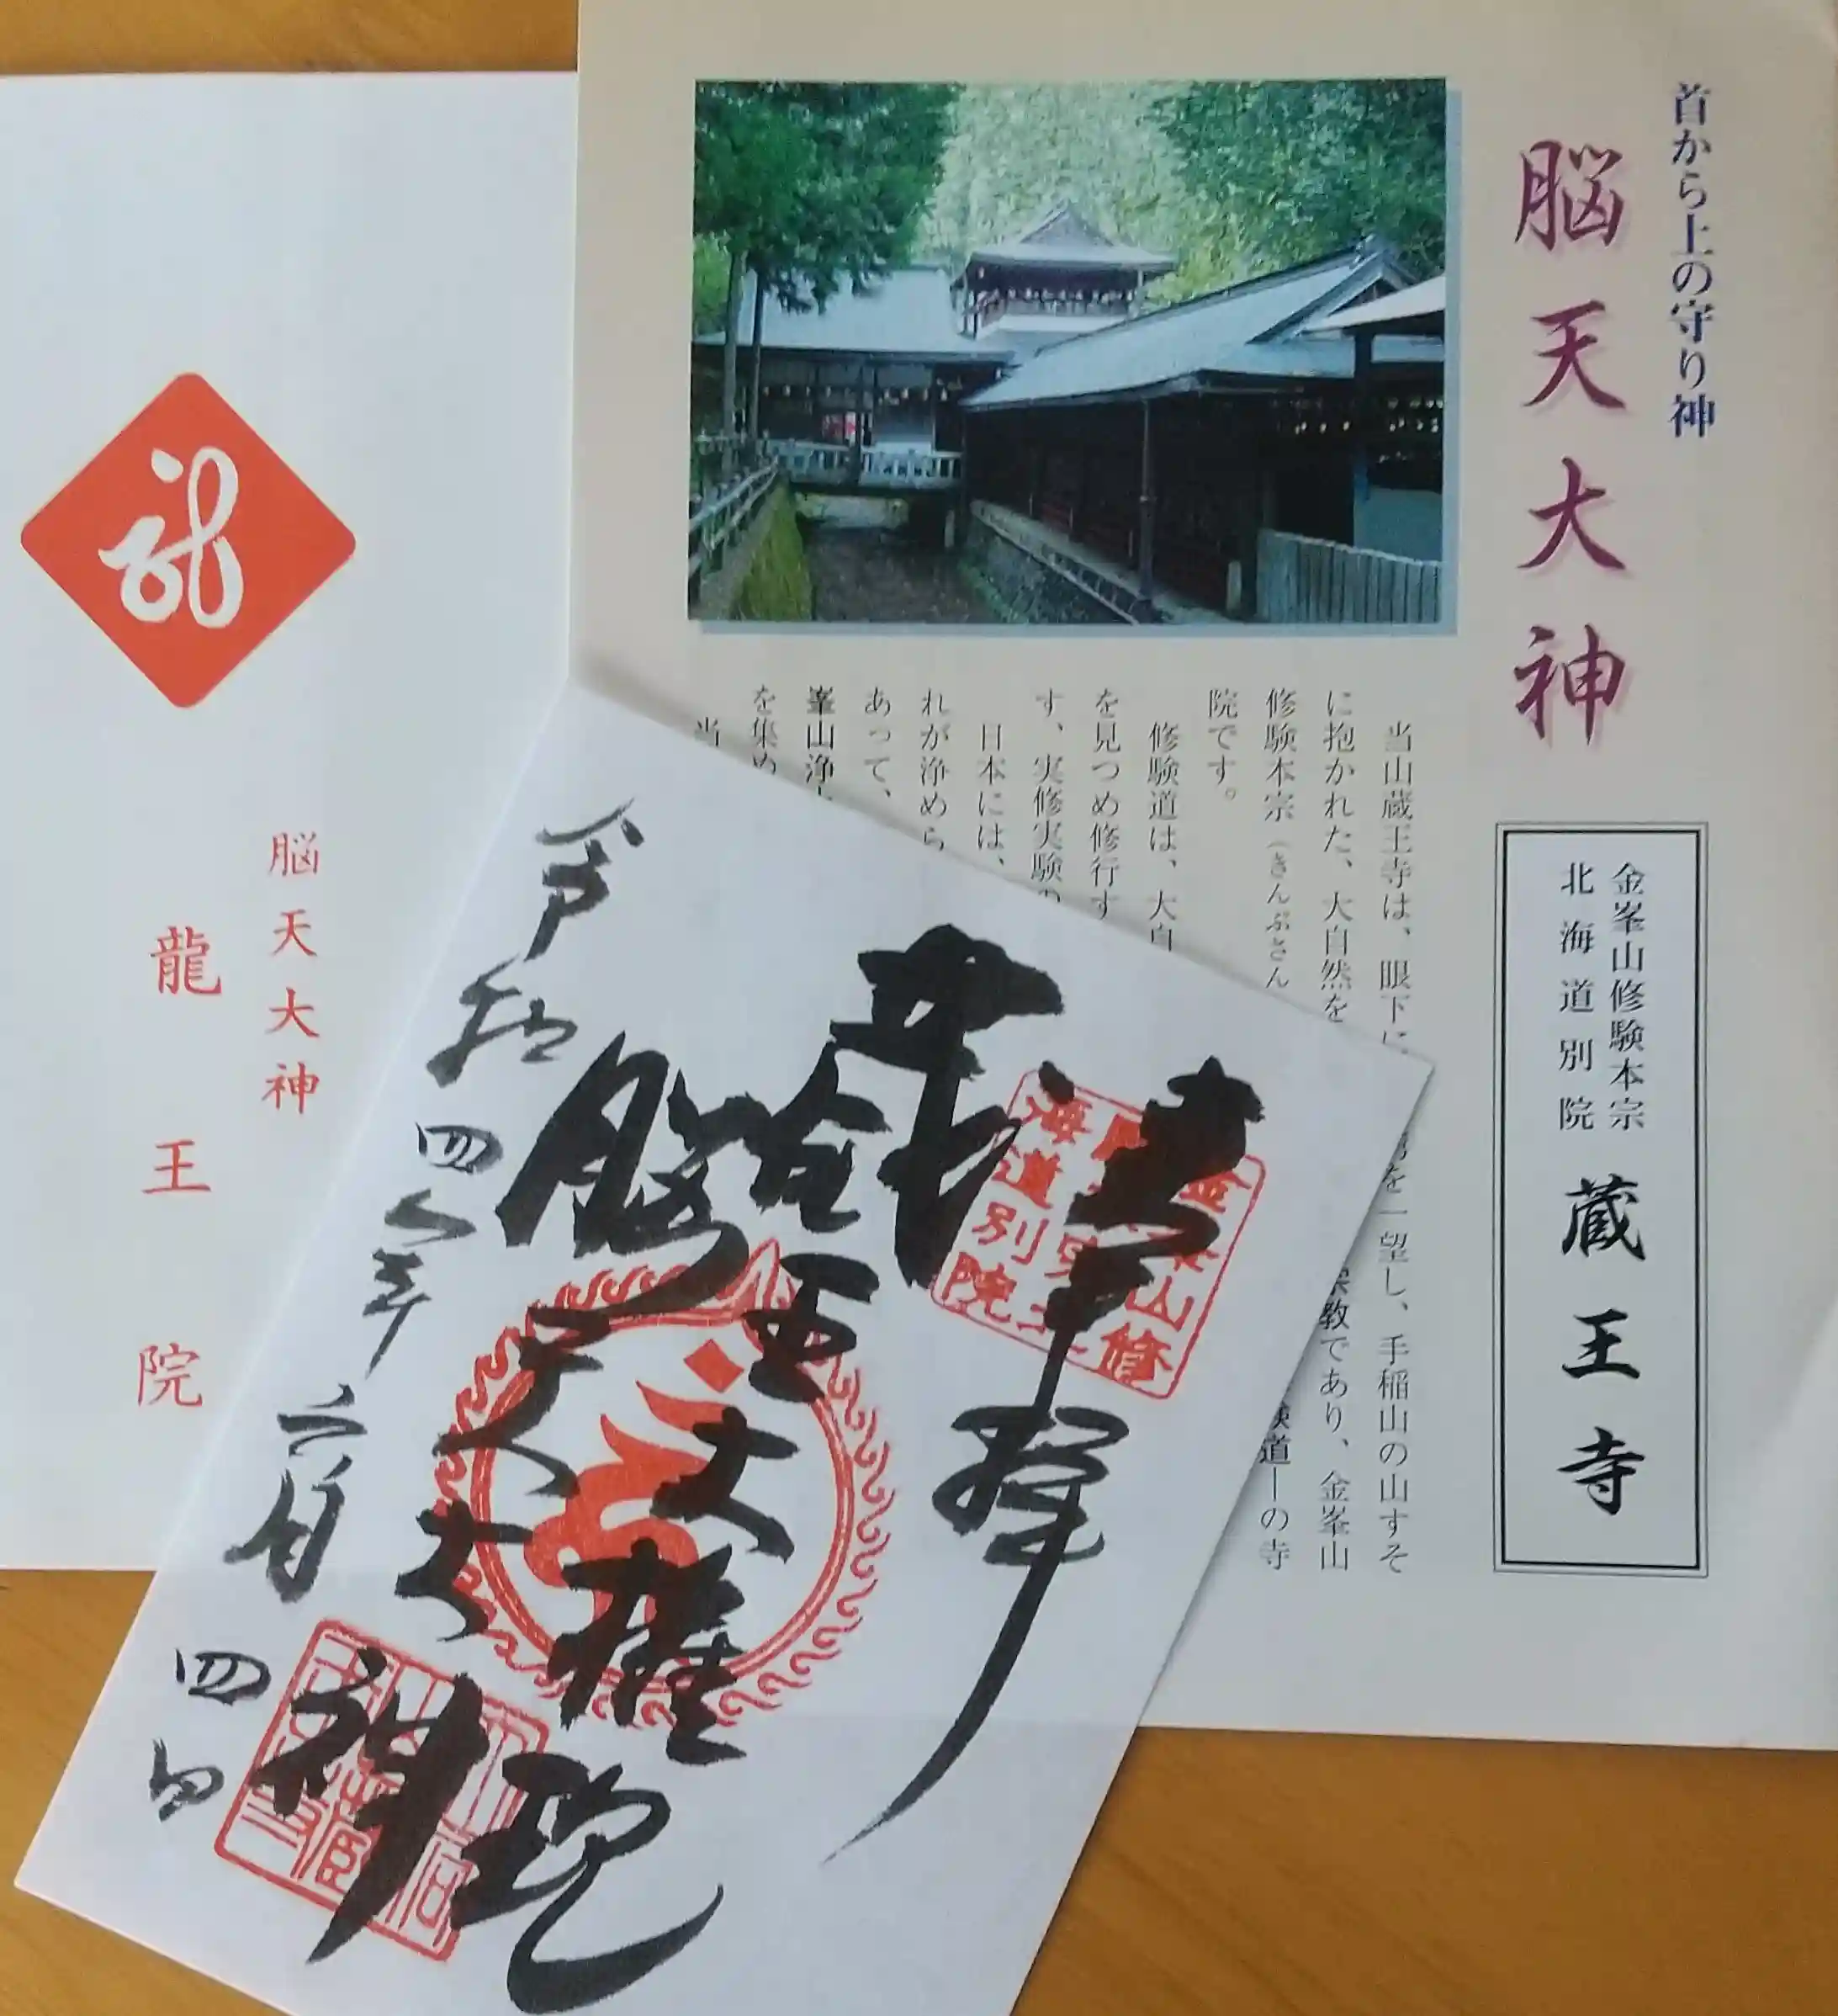 首から上の守り神
脳天大神
金峯山修験本宗
北海道別院
蔵王寺
当山蔵王寺は、眼下に
を一望し、手稲山の山すそ
に抱かれた、大自然を
宗教であり、金峯山
修験本宗(きんぷさん
験道―の寺
院です。
修験道は、大自
を見つめ修行す
す、実修実験の
日本には、
れが浄めら
あって、
峯山浄土
を集め
当
脳天大神
龍王院
奉拝
蔵王大権現
脳天大神
令和四年
二月
四日
海道別院